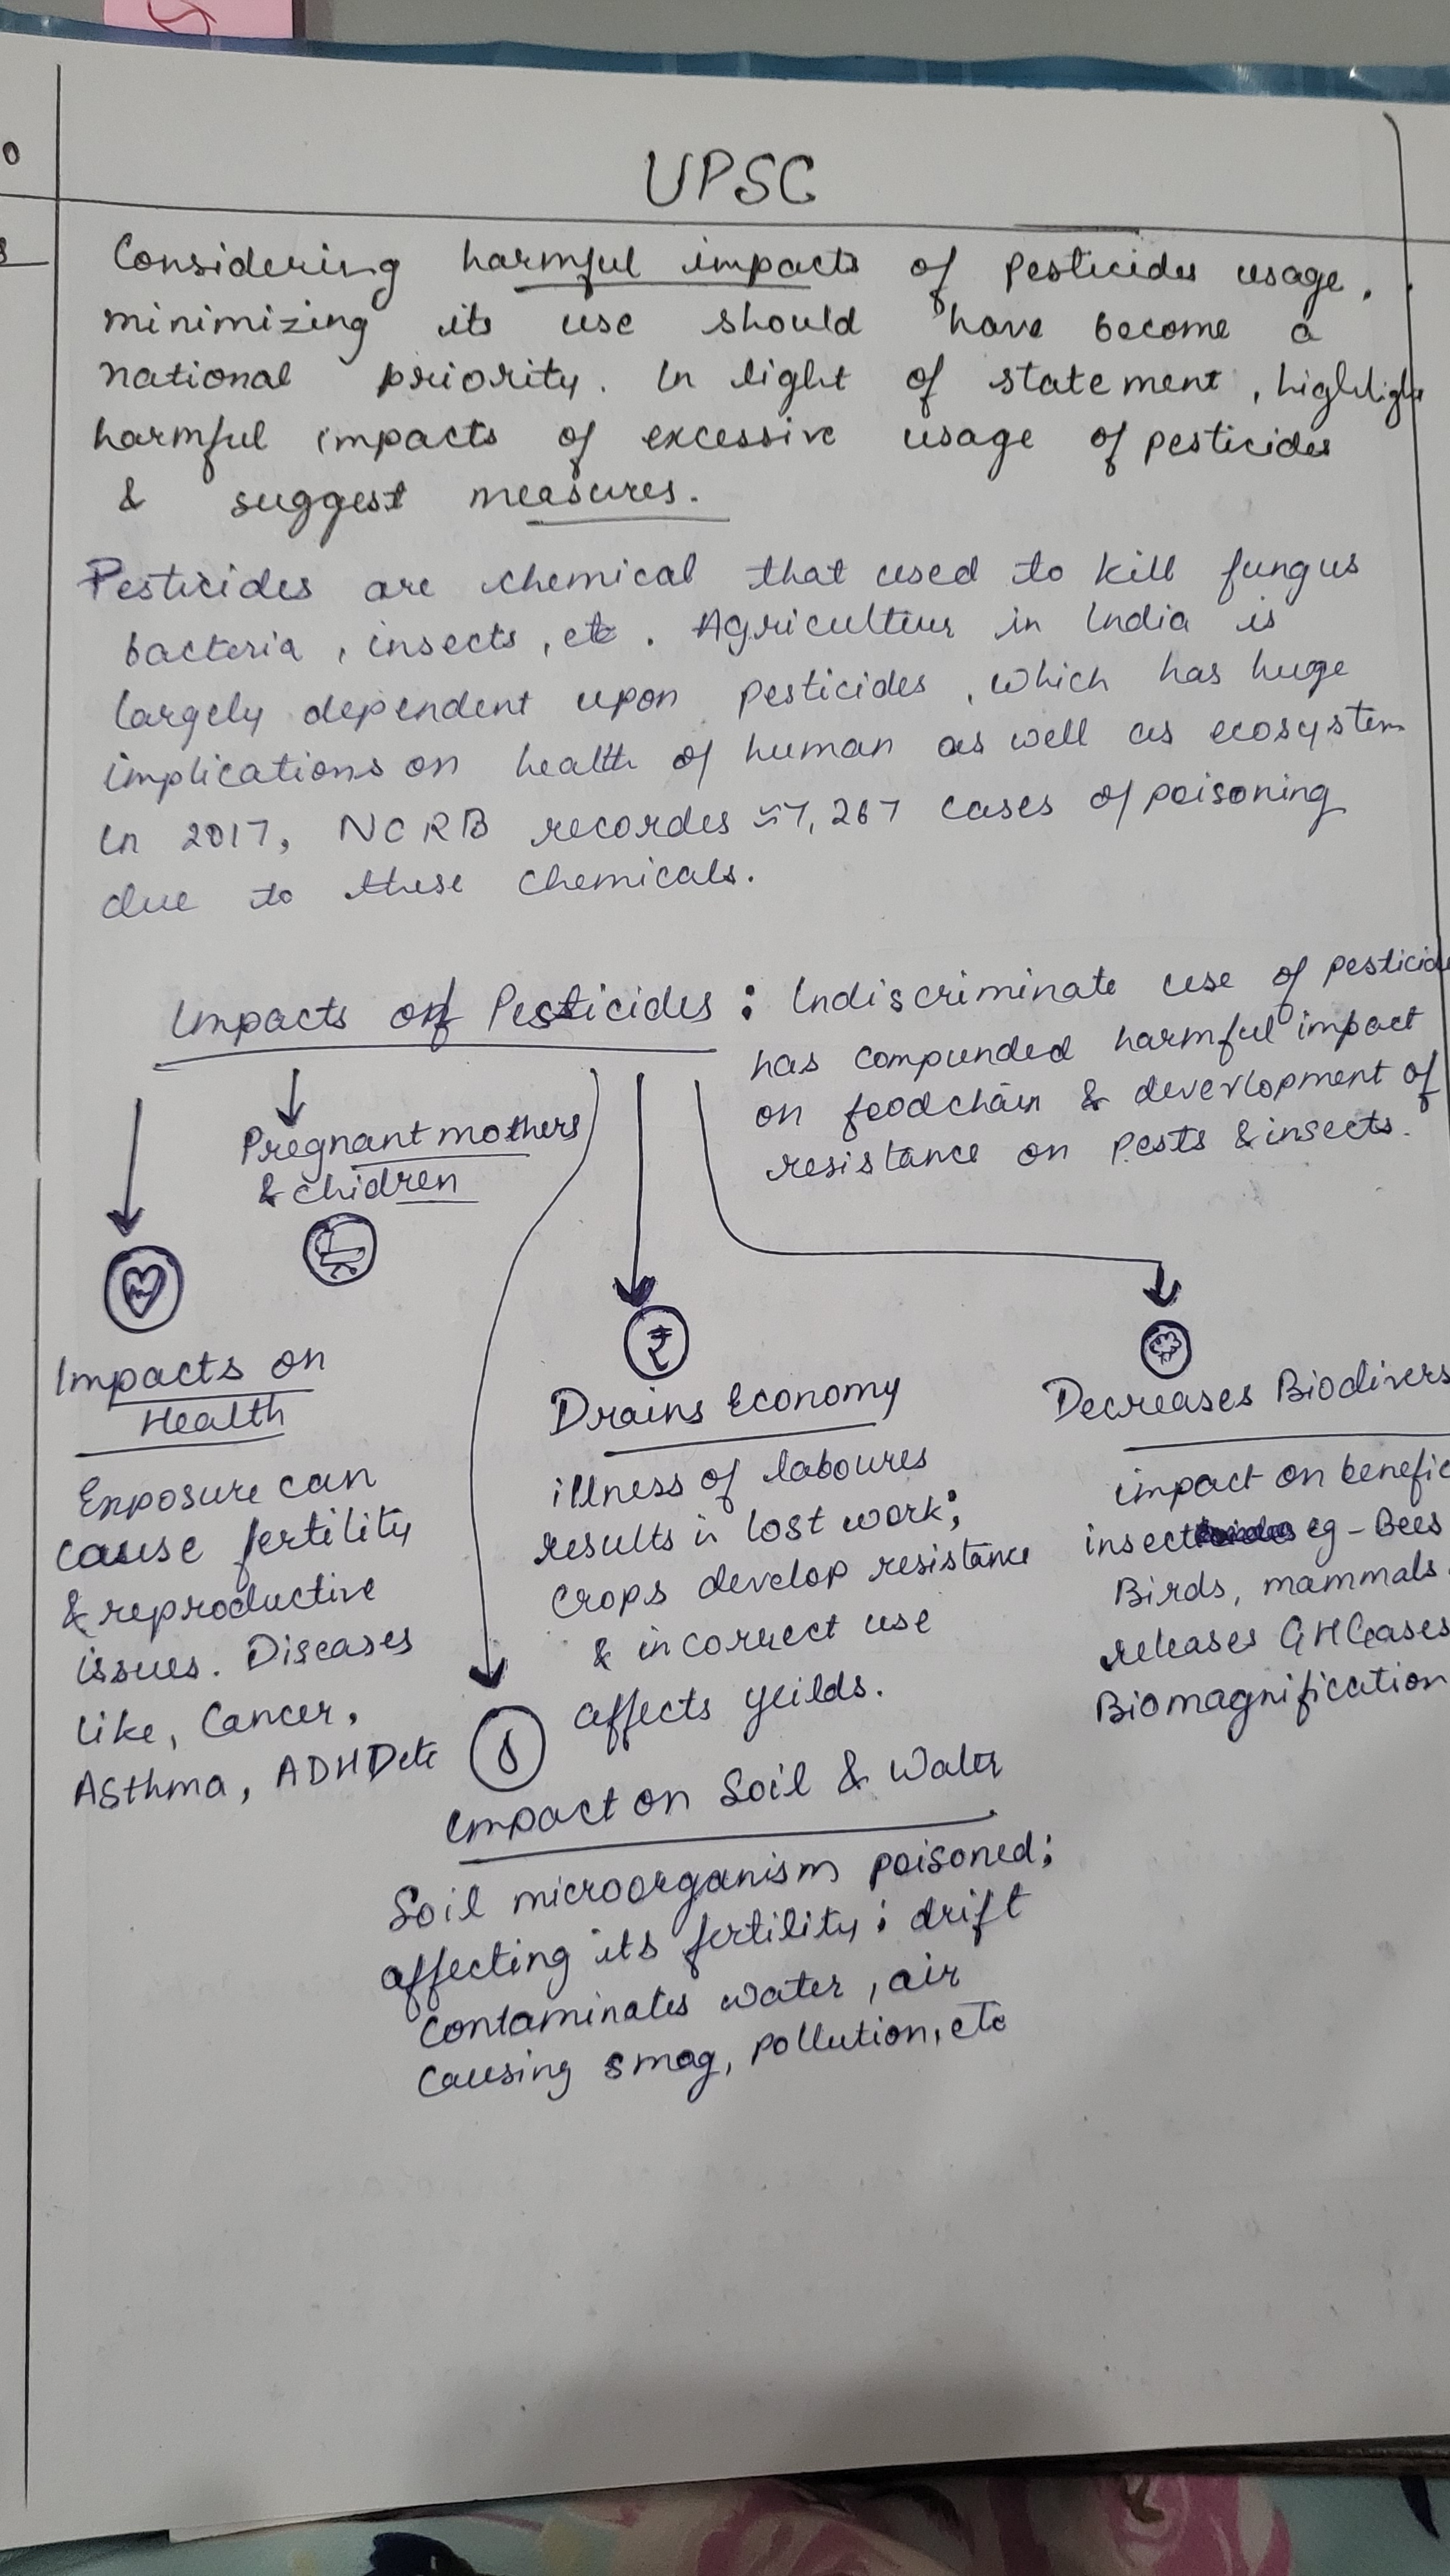 UPSC
Considering harmful impacts of pesticides usage,
minimizing its use should have become a
national priority. In light of statement, highlight
harmful impacts of excessive usage of pesticides
& suggest measures.
Pesticides are chemical that used to kill fungus
bacteria, insects, etc. Agriculture in India is
largely dependent upon pesticides, which has huge
implications on health of human as well as ecosystem
In 2017, NCRB recordes 7,267 cases of poisoning
due to these chemicals.
Impacts of Pesticides : Indiscriminate use of pesticide
has compunded harmful impact
on foodchain & deverlopment of
resistance on pests & insects.
Pregnant mothers
& chidren
Impacts on
Health
Exposure can
cause fertility
& reproductive
issues. Diseases
like, Cancer,
Asthma, ADHD etc
₹
Drains Economy
illness of laboures
results in lost work;
Crops develop resistance
& incorrect use
affects yeilds.
Decreases Biodivers
impact on benefic
insect eg - Bees
Birds, mammals.
releases GHGases
Biomagnification
Impact on Soil & Water
Soil microorganism poisoned;
affecting its fertility; drift
contaminates water, air
causing smog, pollution, etc